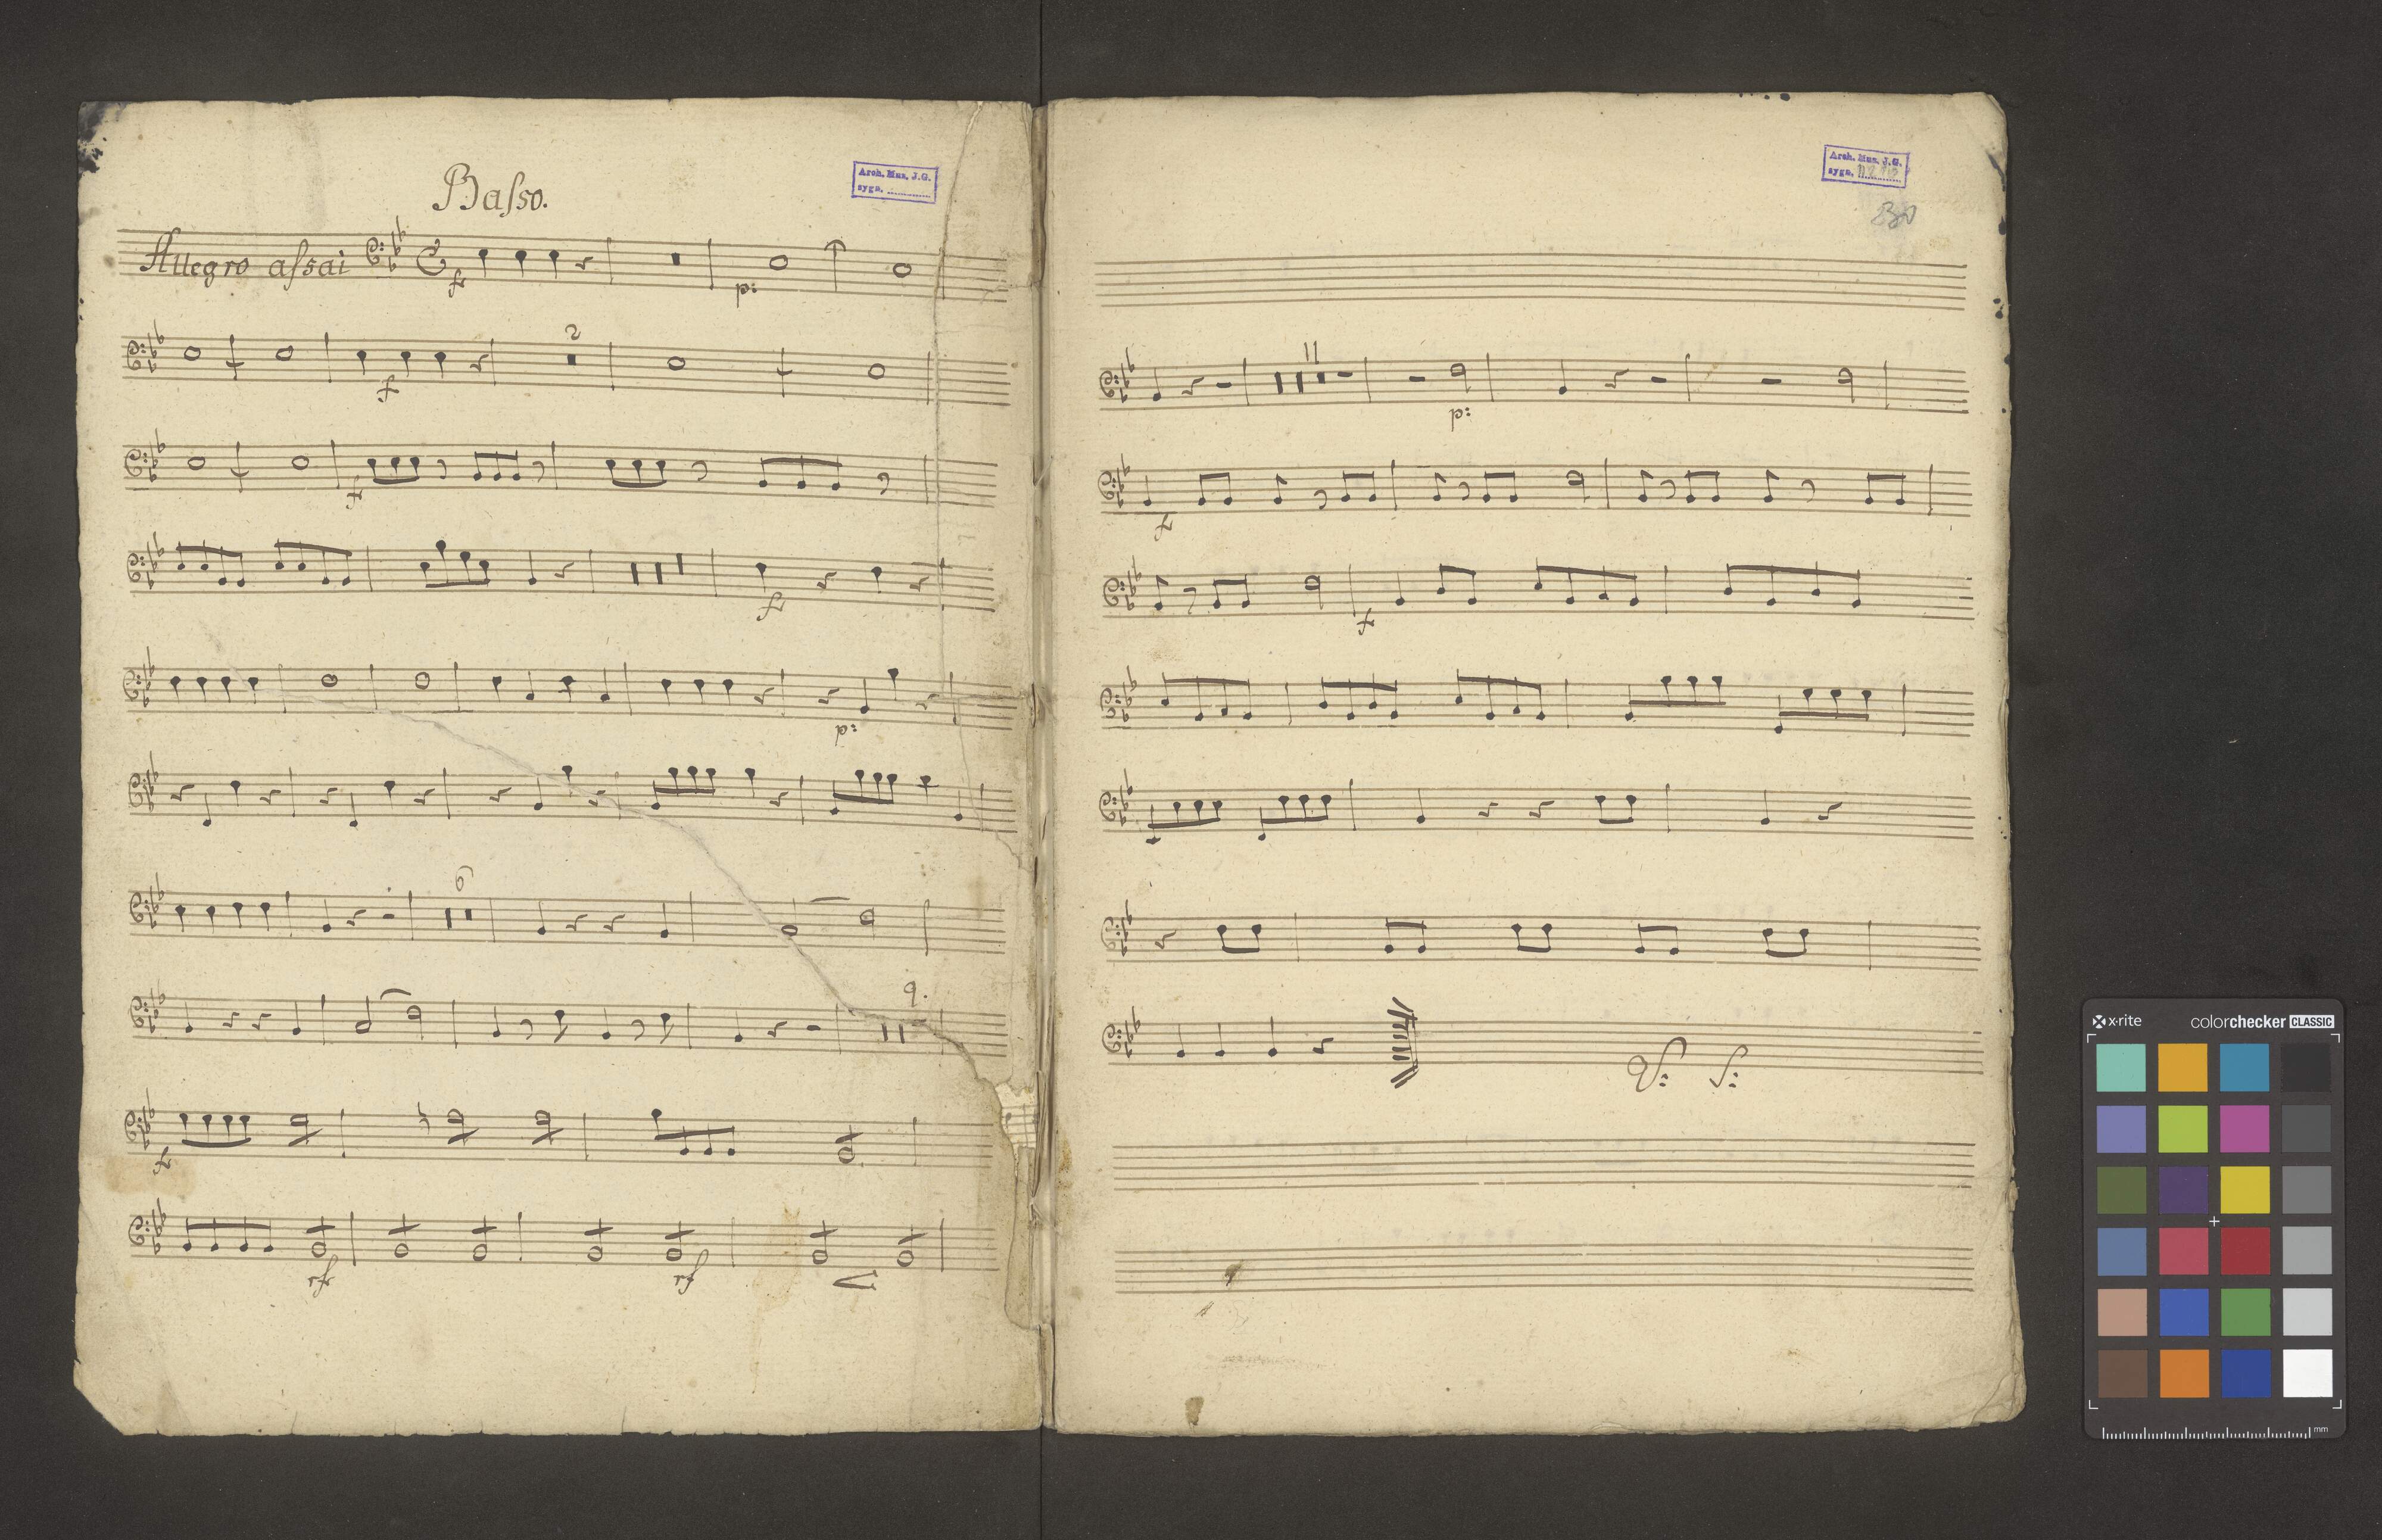 Basso.
Arch. Mus. J.G.
sygn.
Allegro aſsai
f
p:
2
f
f
f
p:
6
9.
f
rf
rf
Arch. Mus. J.G.
sygn.
11
p:
f
f
V: S:
x·rite
colorchecker CLASSIC
mm